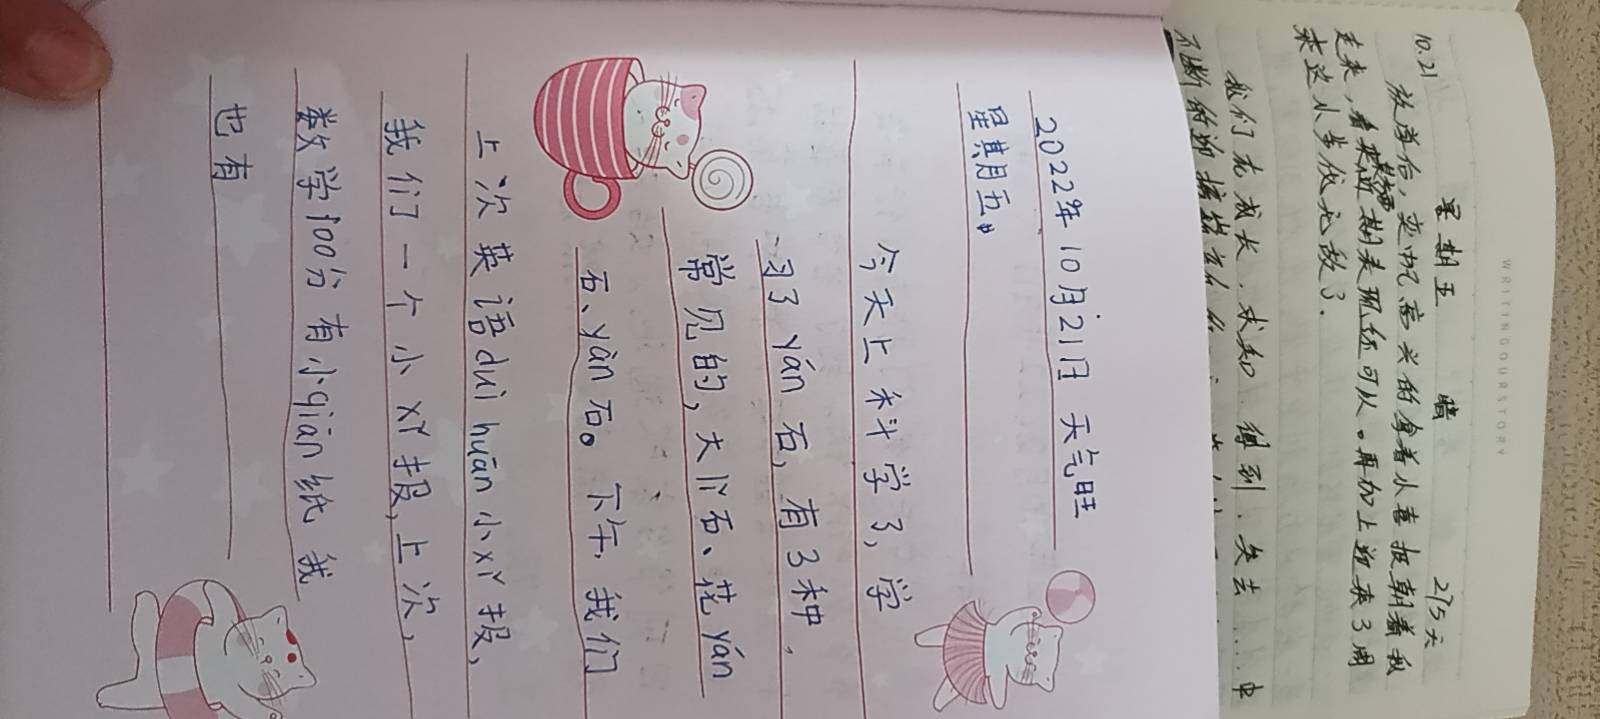 2022年10月21日 天气旺
星期五
今天上科学了,学
习了yán石,有3种,
常见的,大lǐ石、花yán
石、yàn石。下午,我们
上次英语duì huān小xǐ报,
我们一个小xǐ报,上次,
数学100分有小qiān纸 我
也有
WRITINGOURSTORY
10.21 星期五 晴 275天
放学后,奕忱高兴的拿着小喜报朝着我
走来,看来近期表现还可以。再加上迎来3周
来这小半伐无敌了.
我们在成长.求知 得到.失去....中
不断的